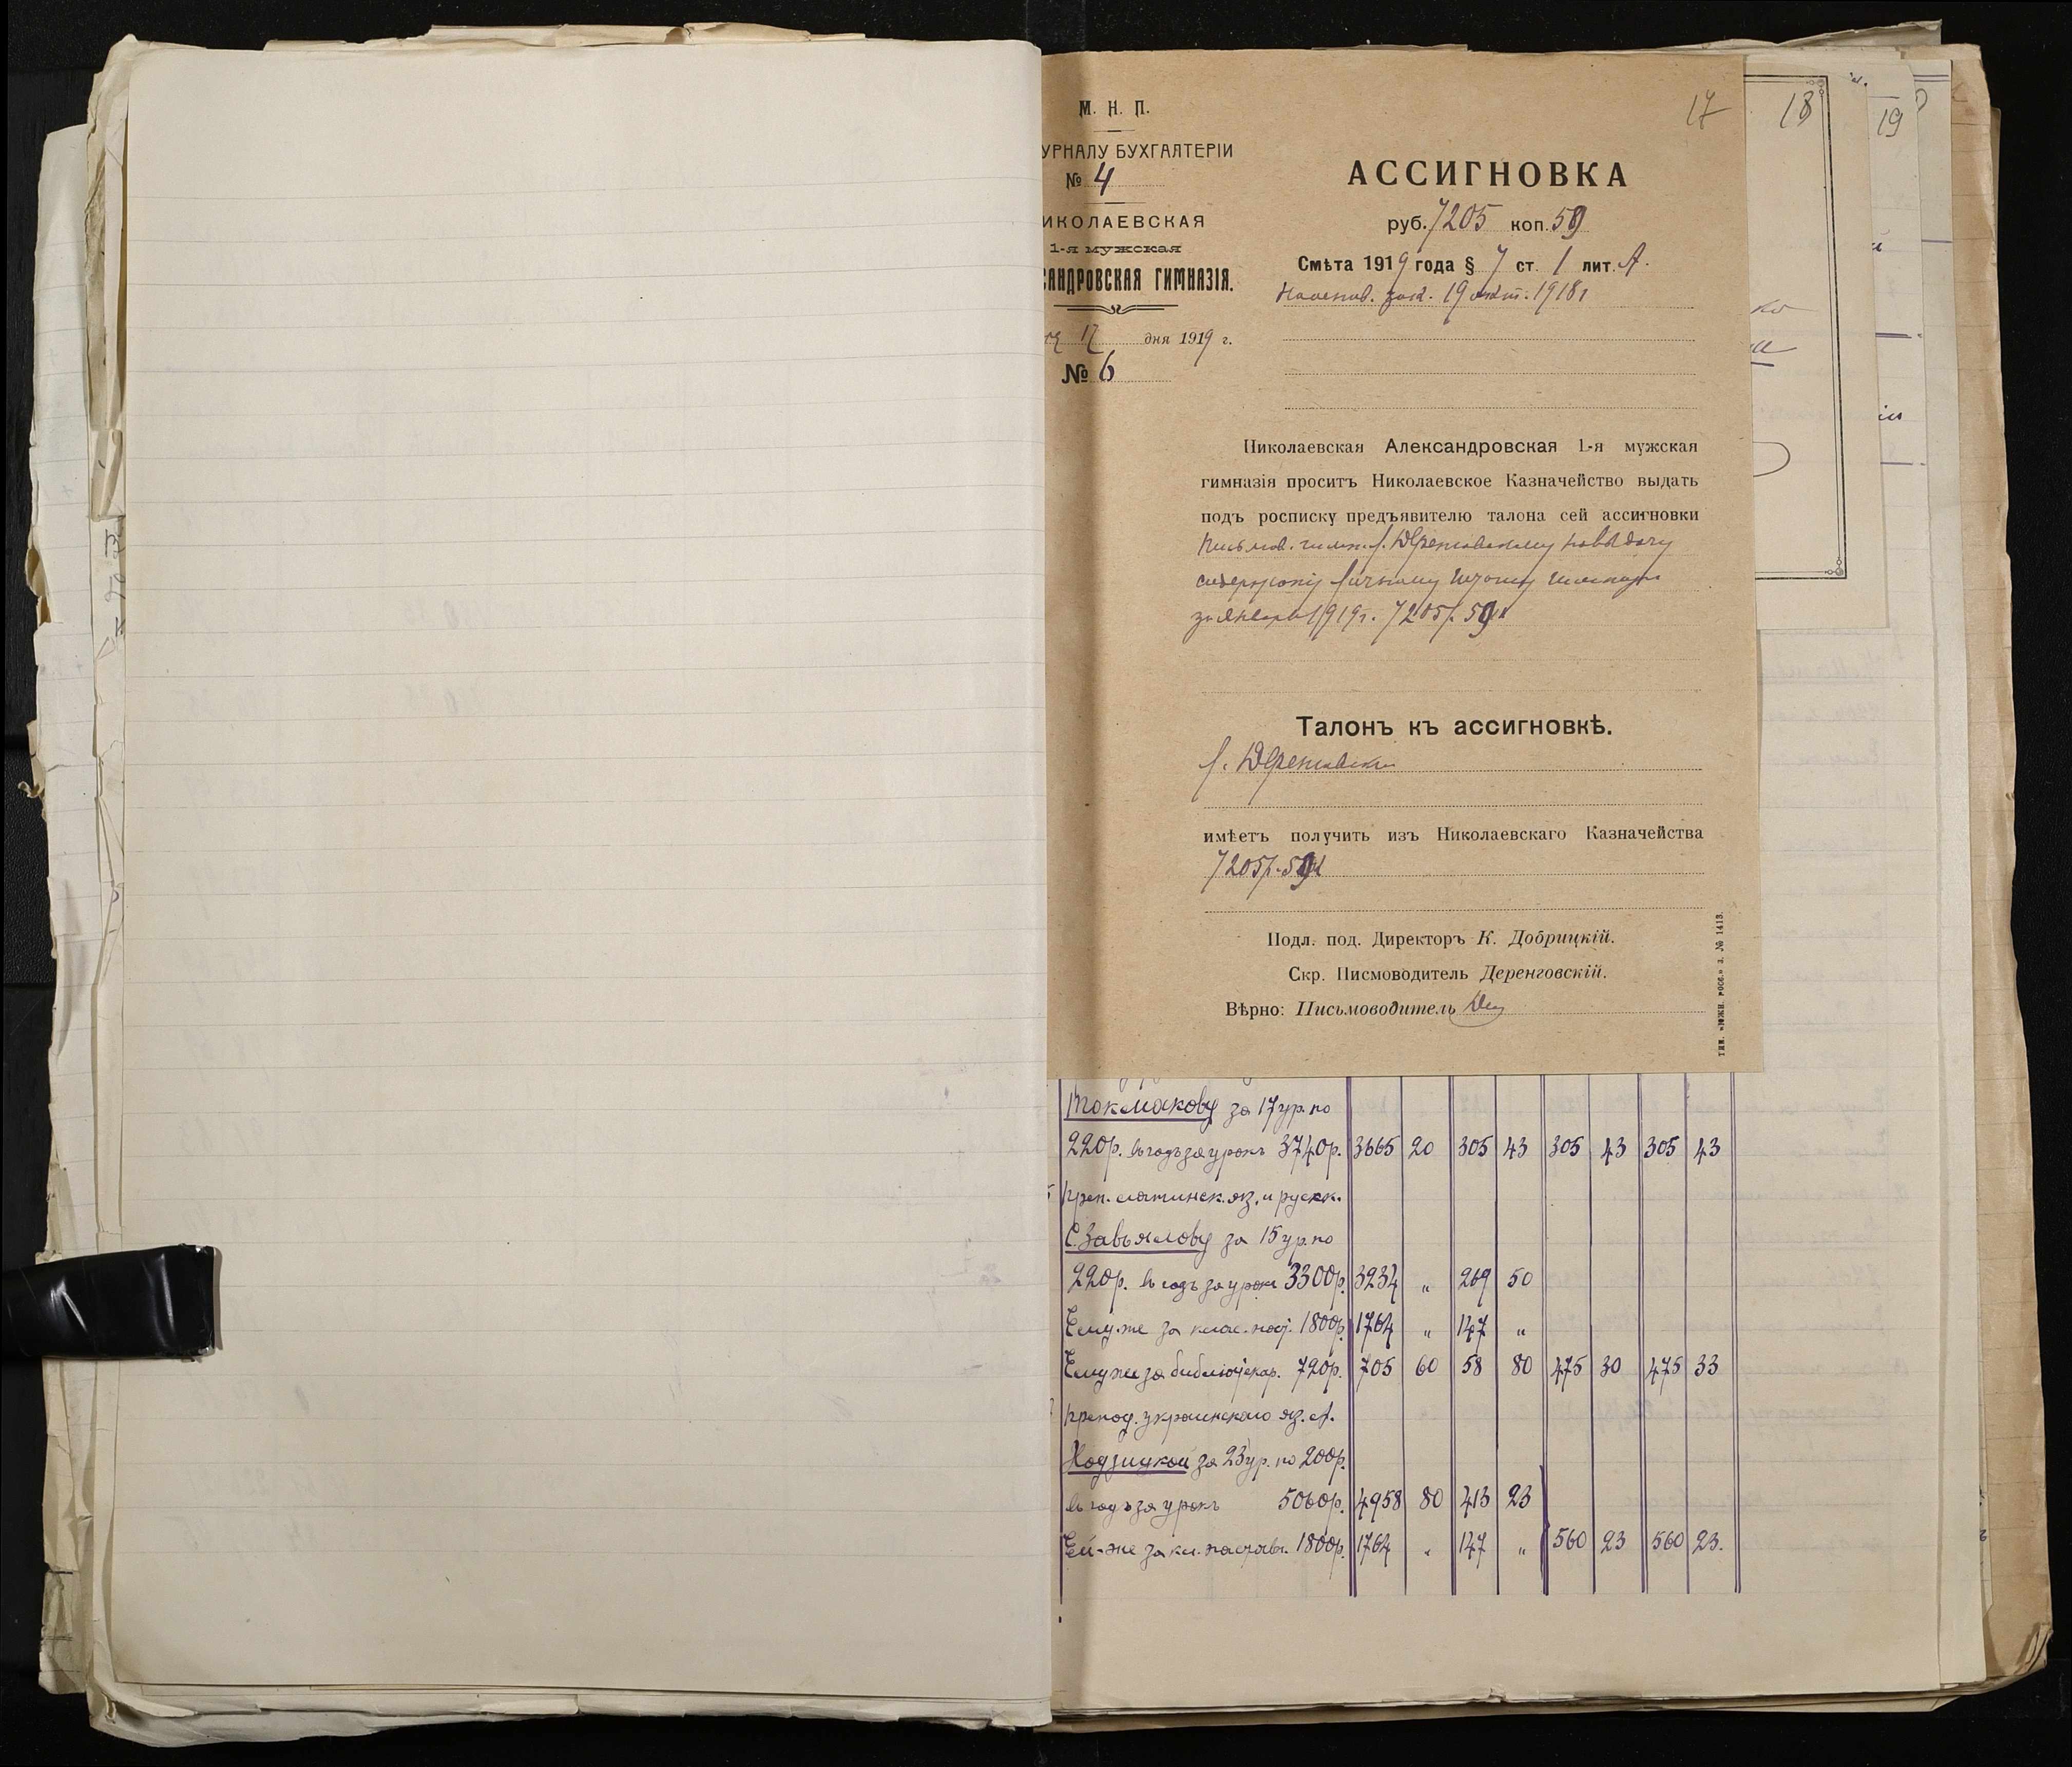 17
18
19
М. Н. П.
УРНАЛУ БУХГАЛТЕРІИ
№ 4
ИКОЛАЕВСКАЯ
1-я мужская
САНДРОВСКАЯ ГИМНАЗІЯ.
17 дня 1919 г.
№ 6
АССИГНОВКА
руб. 7205 коп. 59
Смѣта 1919 года § 7 ст. 1 лит. А.
зак. 19 окт. 1918 г
Николаевская Александровская 1-я мужская
гимназія проситъ Николаевское Казначейство выдать
подъ росписку предъявителю талона сей ассигновки
Письмов. гимн. Деренговскому на выдачу
содержанія личному составу гимназіи
за январь 1919 г. 7205 р. 59 к
Талонъ къ ассигновкѣ.
Деренговскій
имѣетъ получить изъ Николаевскаго Казначейства
7205 р. 59 к
Подл. под. Директоръ К. Добрицкій.
Скр. Писмоводитель Деренговскій.
Вѣрно: Письмоводитель
Тип. «Южн. Росс.» З. № 1413.
Токмакову за 17 ур. по
220р. въ годъ за урокъ 3740р. 3665 20 305 43 305 43 305 43
преп. латинск. яз. и русск.
С. Завьялову за 15 ур. по
220р. въ годъ за урокъ 3300р. 3234 „ 269 50
Ему-же за клас. наст. 1800р. 1764 „ 147 „
Ему же за библіотекар. 720р. 705 60 58 80 475 30 475 33
препод. украинскаго яз. А.
Ходзицкой за 23 ур. по 200р.
въ годъ за урокъ 5060р. 4958 80 413 23
Ей-же за кл. наставн. 1800р. 1764 „ 147 „ 560 23 560 23.